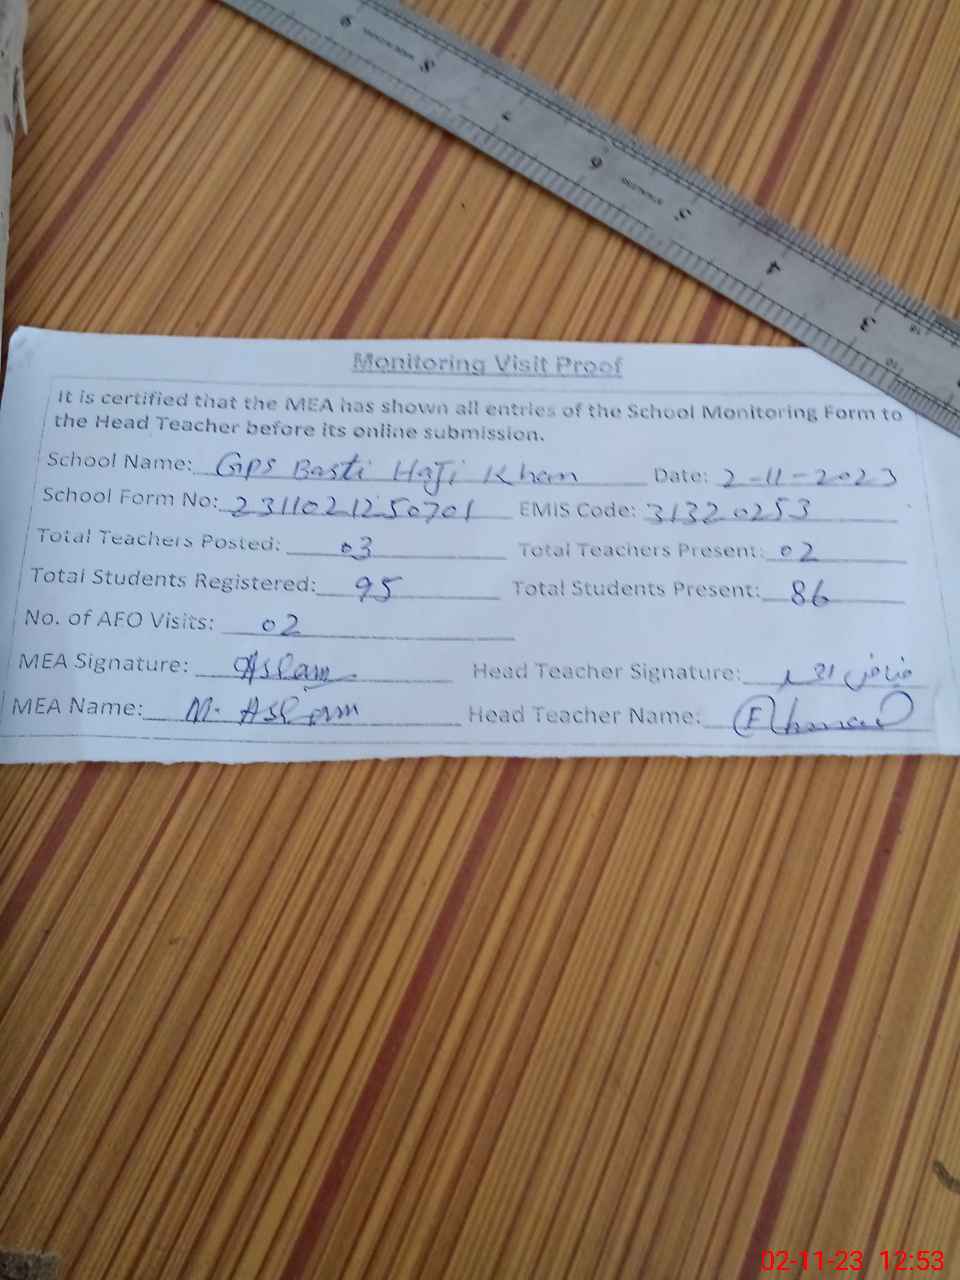 9 8 7 6 5 4 3
Monitoring Visit Proof
It is certified that the MEA has shown all entries of the School Monitoring Form to
the Head Teacher before its online submission.
School Name: GPS Basti Haji Khan Date: 2-11-2023
School Form No: 2311021250701 EMIS Code: 31320253
Total Teachers Posted: 03 Total Teachers Present: 02
Total Students Registered: 95 Total Students Present: 86
No. of AFO Visits: 02
MEA Signature: Aslam Head Teacher Signature:
MEA Name: M. Aslam Head Teacher Name:
02-11-23 12:53